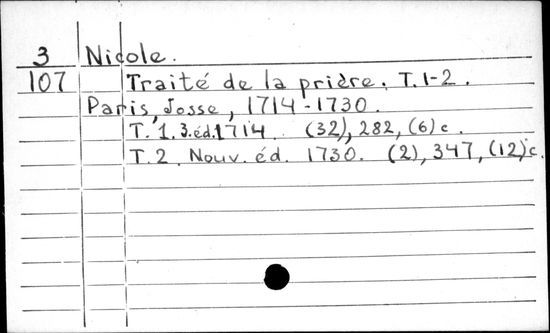 3 Nicole.
107 Traité de la prière. T. 1-2.
Paris, Josse, 1714-1730.
T. 1. 3. éd. 1714. (32), 282, (6) c.
T. 2. Nouv. éd. 1730. (2), 347, (12) c.